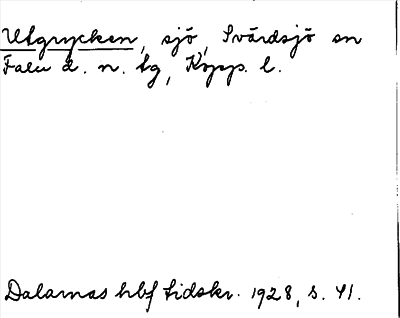 Utgrycken, sjö, Svärdsjö sn
Falu d. n. tg, Kopp. l.
Dalarnas hbf tidskr. 1928, s. 41.